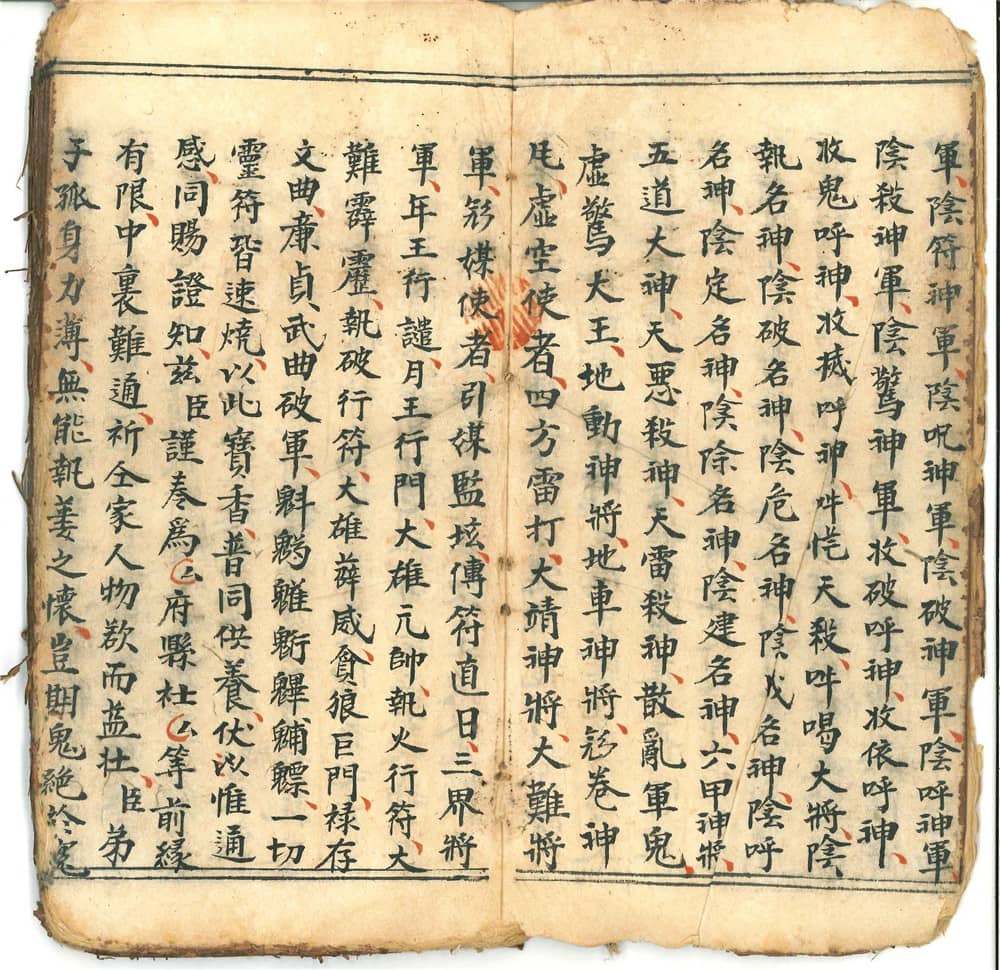 軍、陰符神軍、陰呪神軍、陰破神軍、陰呼神軍
陰殺神軍、陰驚神軍、收破呼神、收依呼神、
收鬼呼神、收摵呼神、吽 天殺、吽喝大將、陰
執名神、陰破名神、陰危名神、陰成名神、陰呼
名神、陰定名神、陰除名神、陰建名神、六甲神將、
五道大神、天惡殺神、天雷殺神、散亂軍鬼、
虛驚大王、地動神將、地車神將、 卷神
虛空使者、四方雷打、大靖神將、大難將
軍、 媒使者、引媒監垓、傳符直日、三界將
軍、年王行譴、月王行門、大雄元帥、執火行符、大
難霹靂、執破行符、大雄 威、貪狼巨門、祿存
文曲、廉貞、武曲破軍、魁𩳐 䰢魓 、一切
靈符、皆速燒、以此寶香、普同供養、伏以惟通
感、同賜證知、茲臣謹奏爲厶府縣社厶等前緣
有限、中裏難通、祈全家人物欲而益壯、臣弟
子孤身力薄、無能執 之懷、豈期鬼絶於冤